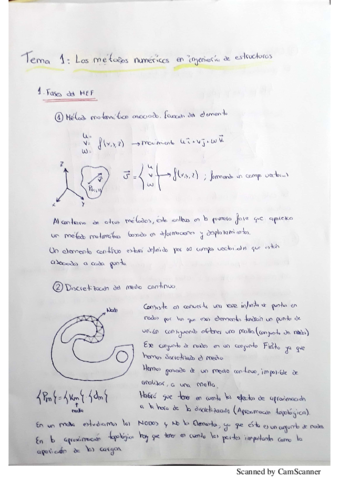 Tema 1: Los métodos numéricos en ingeniería de estructuras
1. Fases del MEF
① Método matemático asociado función del elemento
u =
v = f(x,y,z) → movimiento u i + v j + w k
w =
z
x
y
= { u v w } → f(x,y,z) ; formando un campo vectorial
Al contrario de otros métodos, este en la primera fase que
un método matemático basado en deformaciones y desplazamientos.
Un elemento continuo estará definido por los campos vectoriales que están
asociados a cada punto.
② Discretización del medio continuo
Nodo
Consiste en convertir una serie infinita de puntos en
nodos por lo que mis elementos tendrán un punto de
unión consiguiendo obtener una malla (conjunto de nodos)
Ese conjunto de nodos es un conjunto Finito ya que
hemos discretizado el medio.
Hemos pasado de un medio continuo, imposible de
analizar, a una malla.
Habrá que tener en cuenta los efectos de aproximación
a la hora de la discretización (Aproximación topológica).
En un medio estudiamos los NODOS y NO los Elementos, ya que este es un conjunto de nodos.
En la aproximación topológica hay que tener en cuenta los puntos importantes como la
aplicación de las cargas.
Scanned by CamScanner